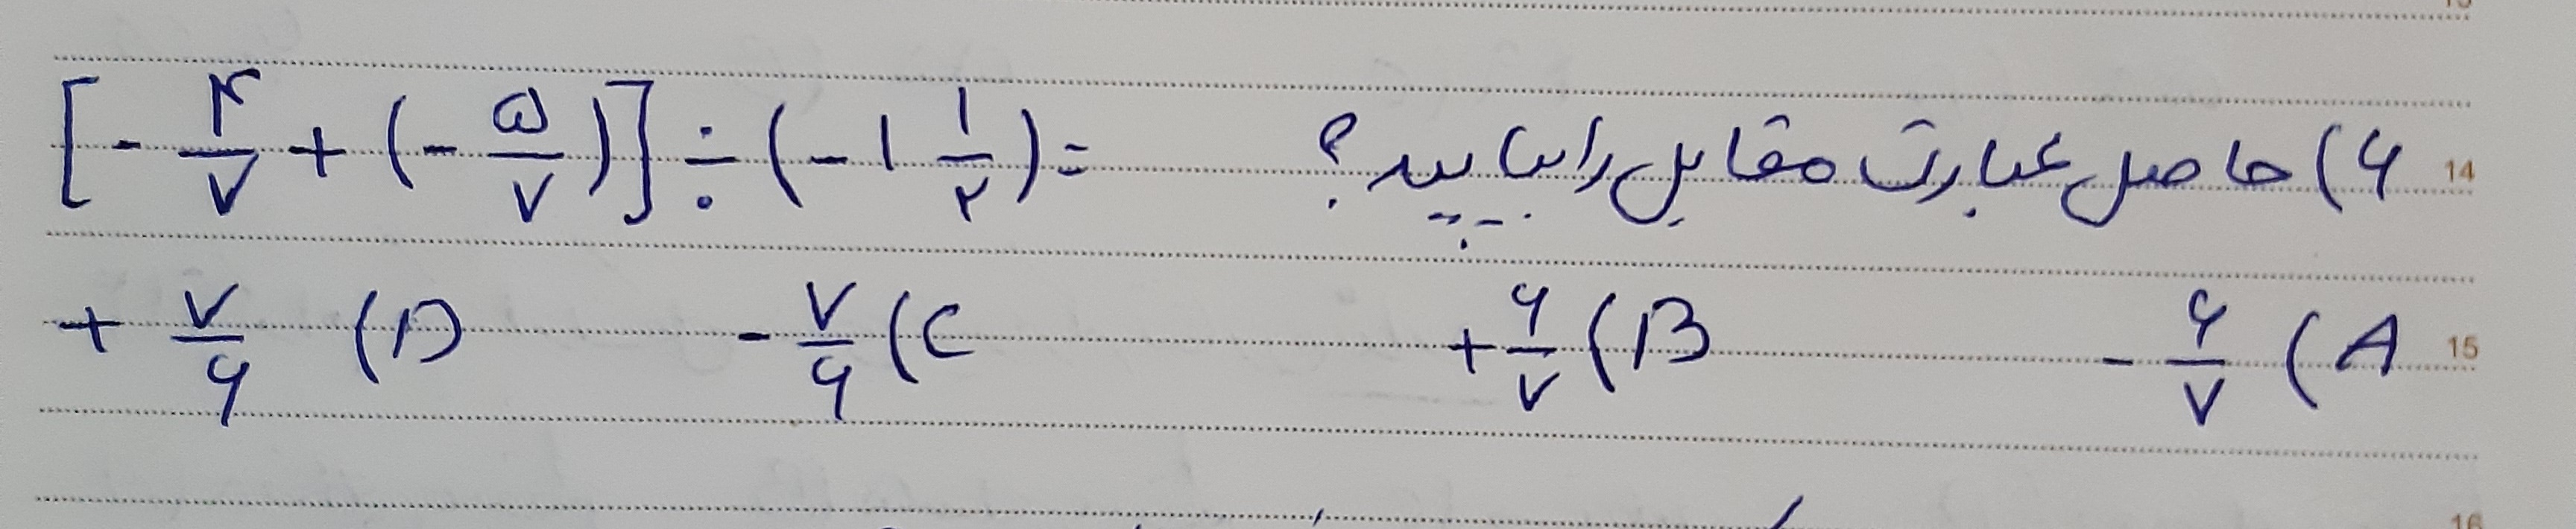 14 ۶) حاصل عبارت مقابل را بیابید؟ [-۴/۷ + (-۵/۷)] ÷ (-۱ ۱/۲) =
15 A) -۶/۷ B) +۶/۷ C) -۷/۶ D) +۷/۶
16